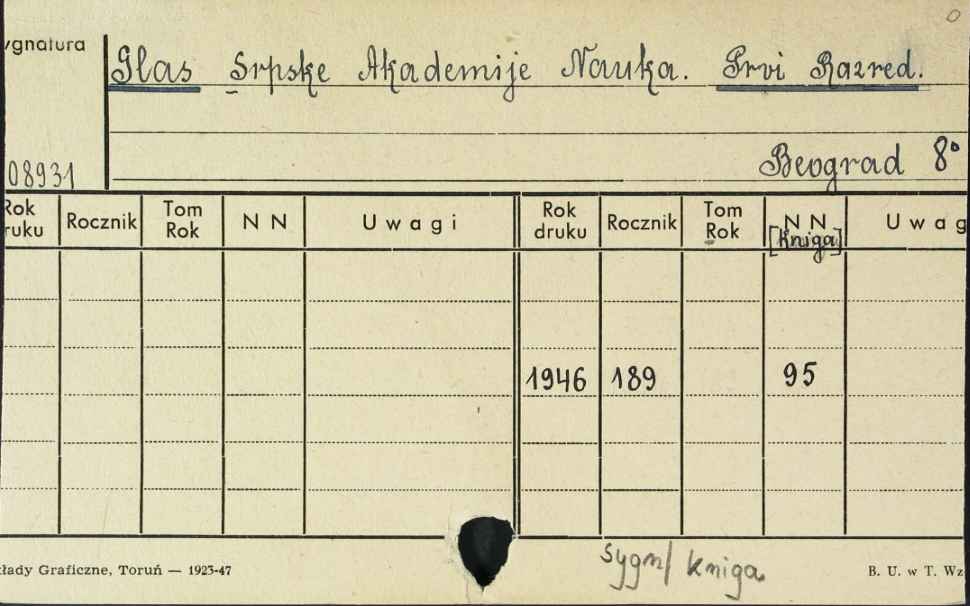 ygnatura
Glas Srpske Akademije Nauka. Prvi Razred.
08931
Beograd 8°
Rok druku Rocznik Tom Rok N N Uwagi Rok druku Rocznik Tom Rok N N [Kniga] Uwag
1946 189 95
sygn/ kniga
kłady Graficzne, Toruń — 1925-47
B. U. w T. Wz